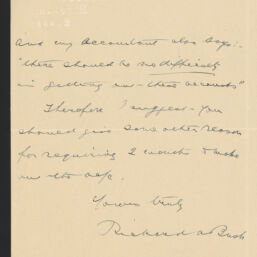 and my accountant also says:-
"there should be no difficulty
in getting out these accounts"
Therefore I suggest you
should give some other reason
for requiring 2 months to make
out the a/cs.
Yours truly
Richard A Bush